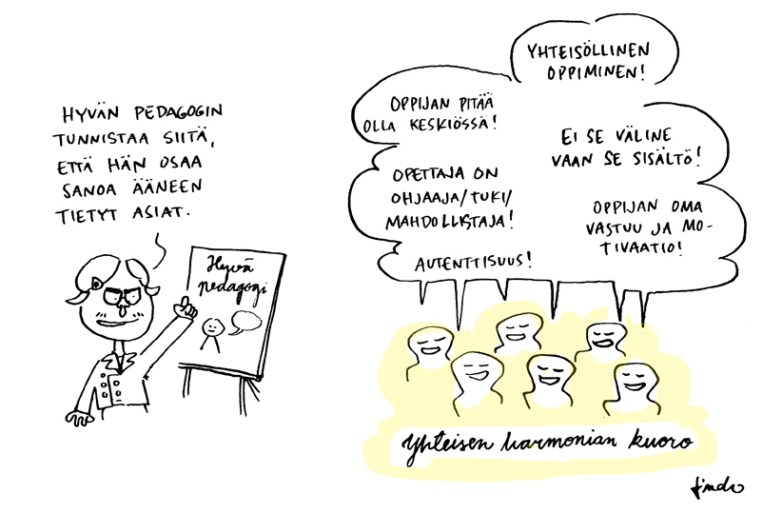 HYVÄN PEDAGOGIN
TUNNISTAA SIITÄ,
ETTÄ HÄN OSAA
SANOA ÄÄNEEN
TIETYT ASIAT.
Hyvä
pedagogi
YHTEISÖLLINEN
OPPIMINEN!
OPPIJAN PITÄÄ
OLLA KESKIÖSSÄ!
EI SE VÄLINE
VAAN SE SISÄLTÖ!
OPETTAJA ON
OHJAAJA/TUKI/
MAHDOLLISTAJA!
OPPIJAN OMA
VASTUU JA MO-
TIVAATIO!
AUTENTTISUUS!
Yhteisen harmonian kuoro